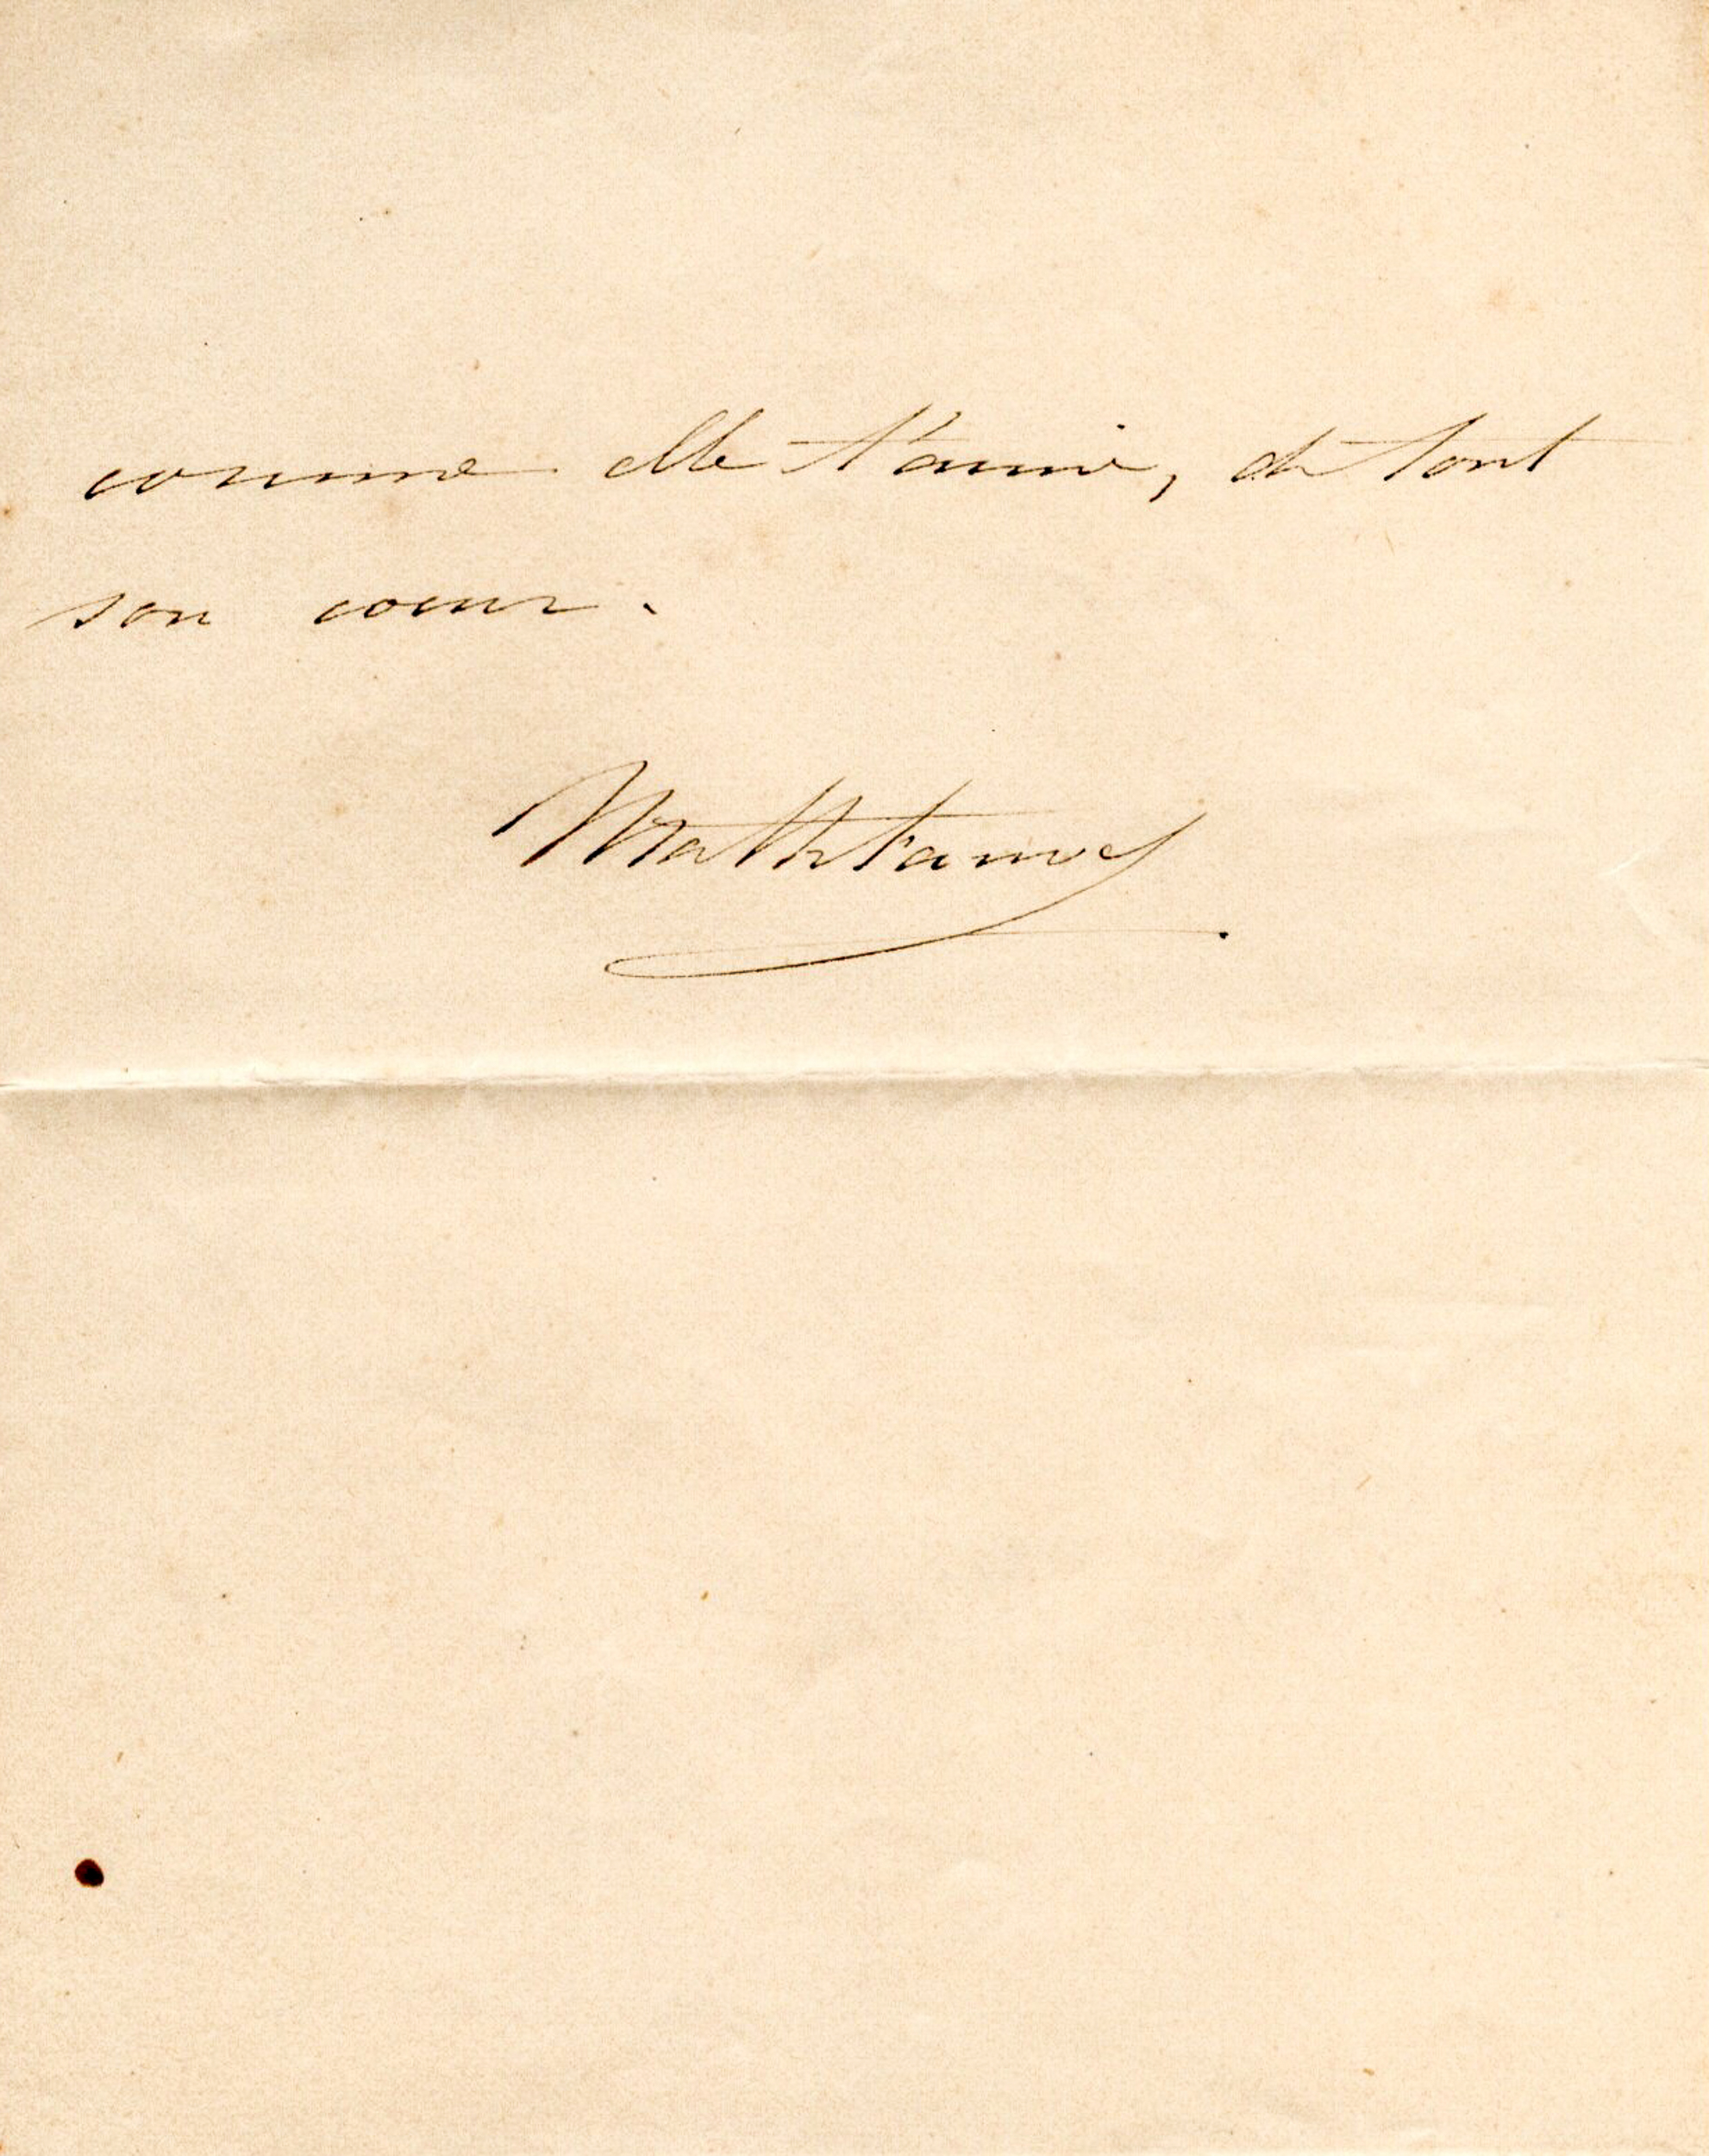 comme elle t'aime, de tout
son coeur.